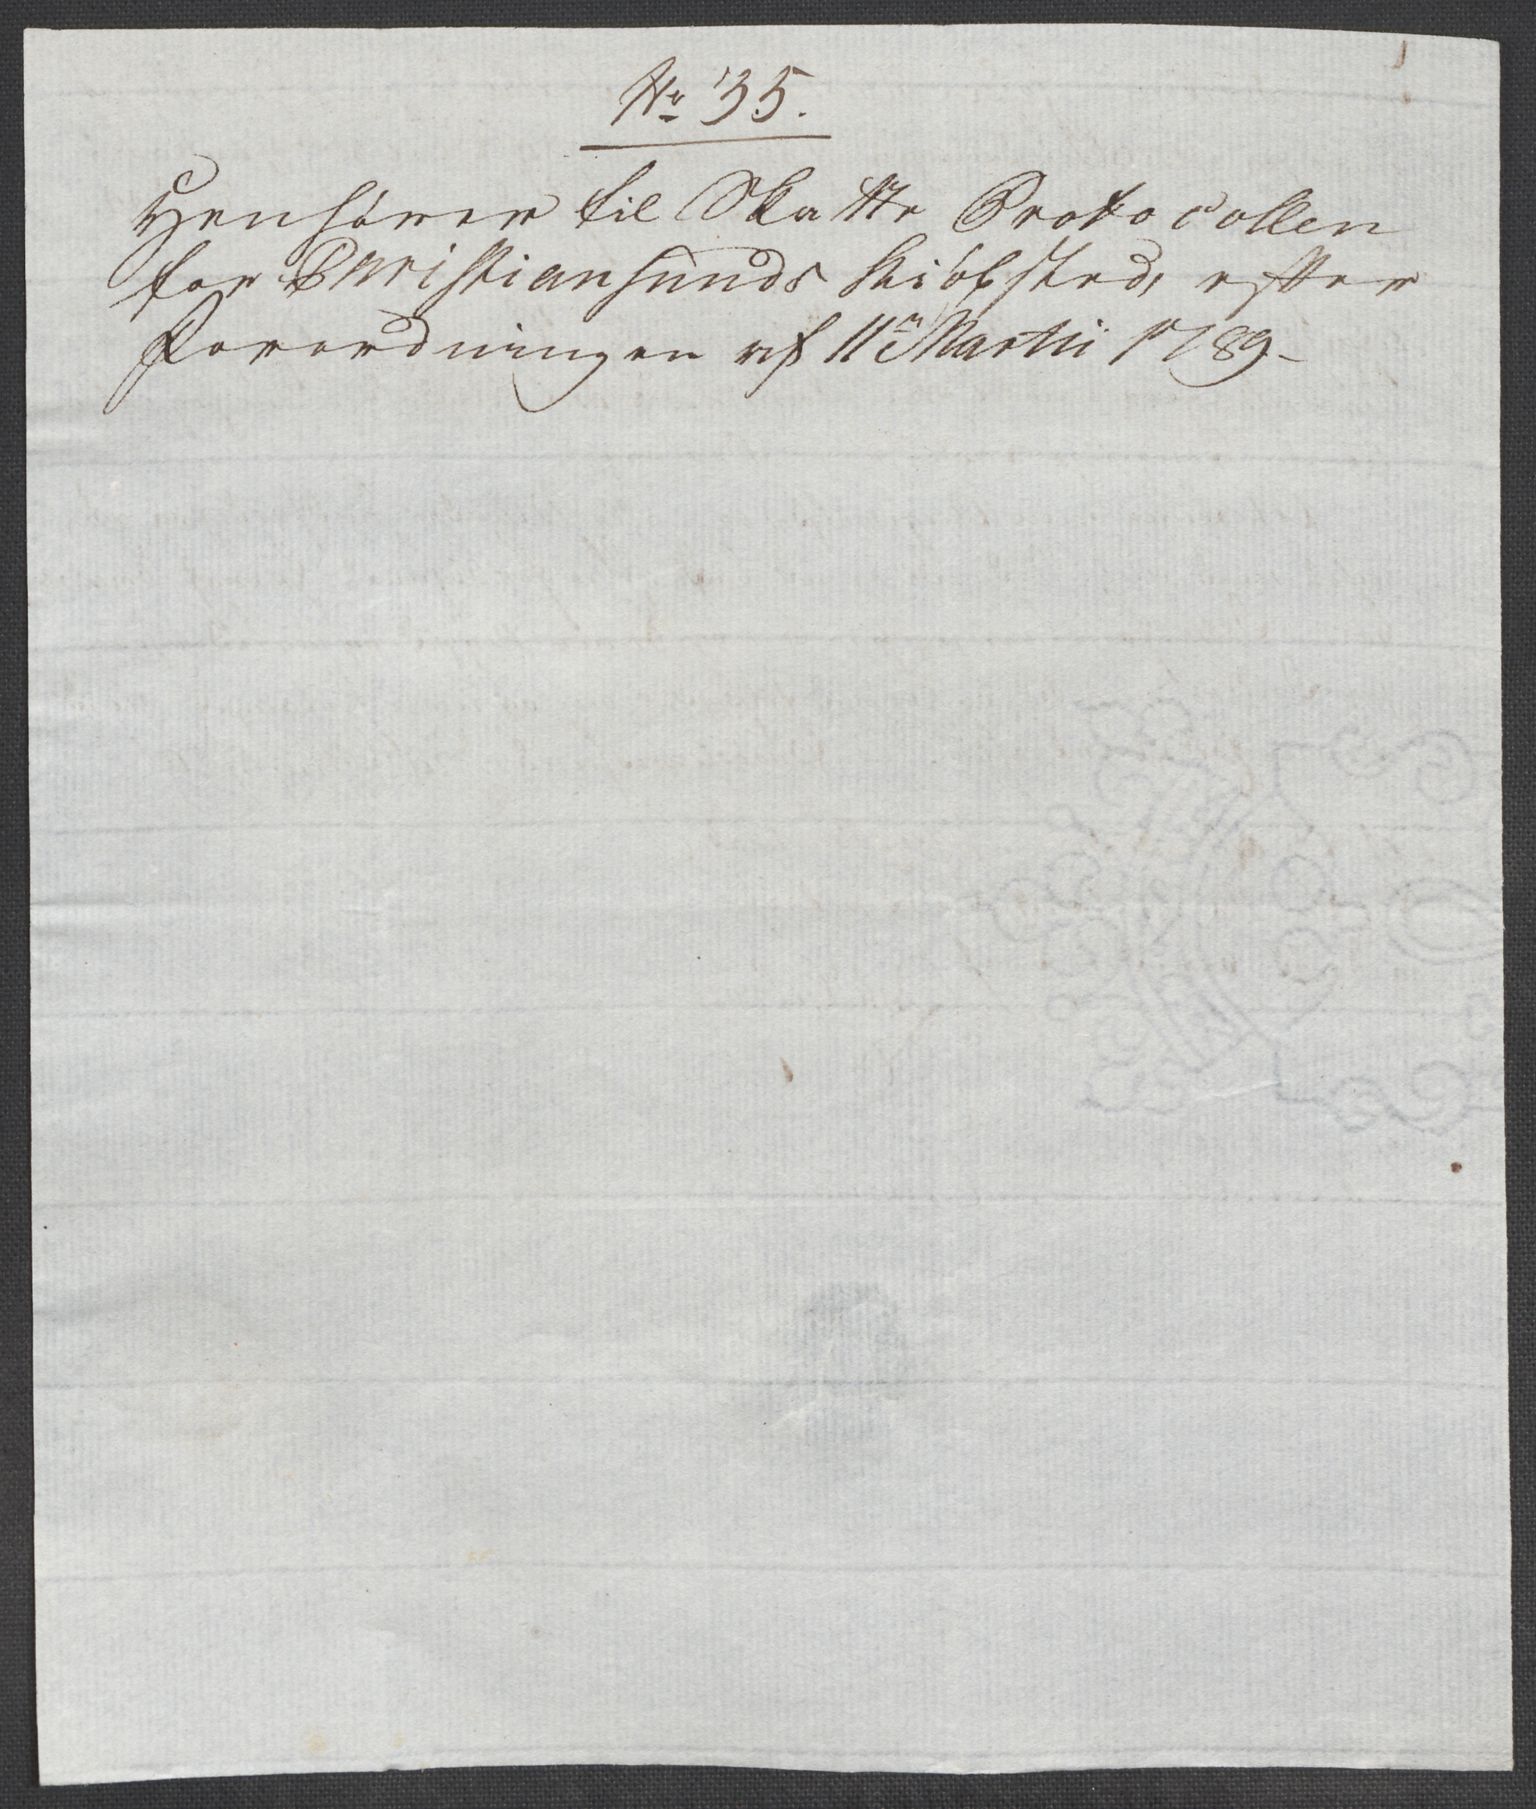 No 35.
Henhörer til Skatte Protocollen
for Christiansunds Kiöbsted, efter
Forordningen af 11te Martii 1789.